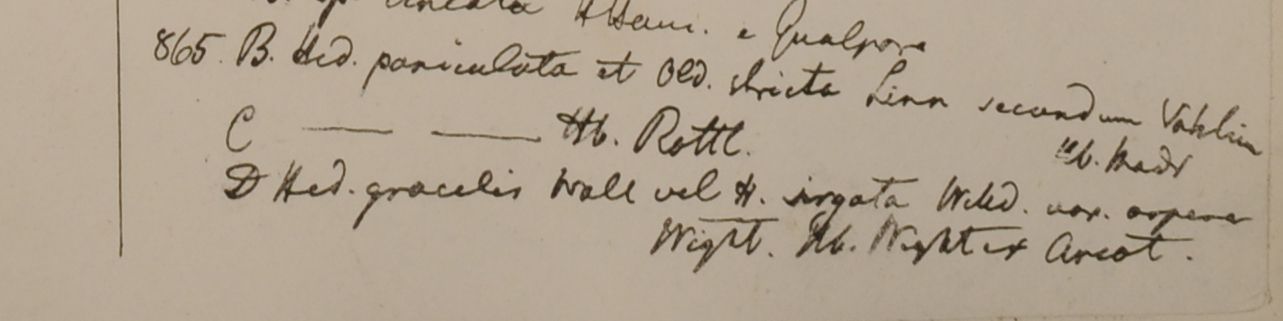 lineata Ham. e Gualpara
865. B. Hed. paniculata et Old. stricta Linn secundum Vahlium
Hb. Madr
C — — Hb. Rottl.
D Hed. gracilis Wall vel H. virgata Willd. var. aspera
Wight. Hb. Wight ex Arcot.